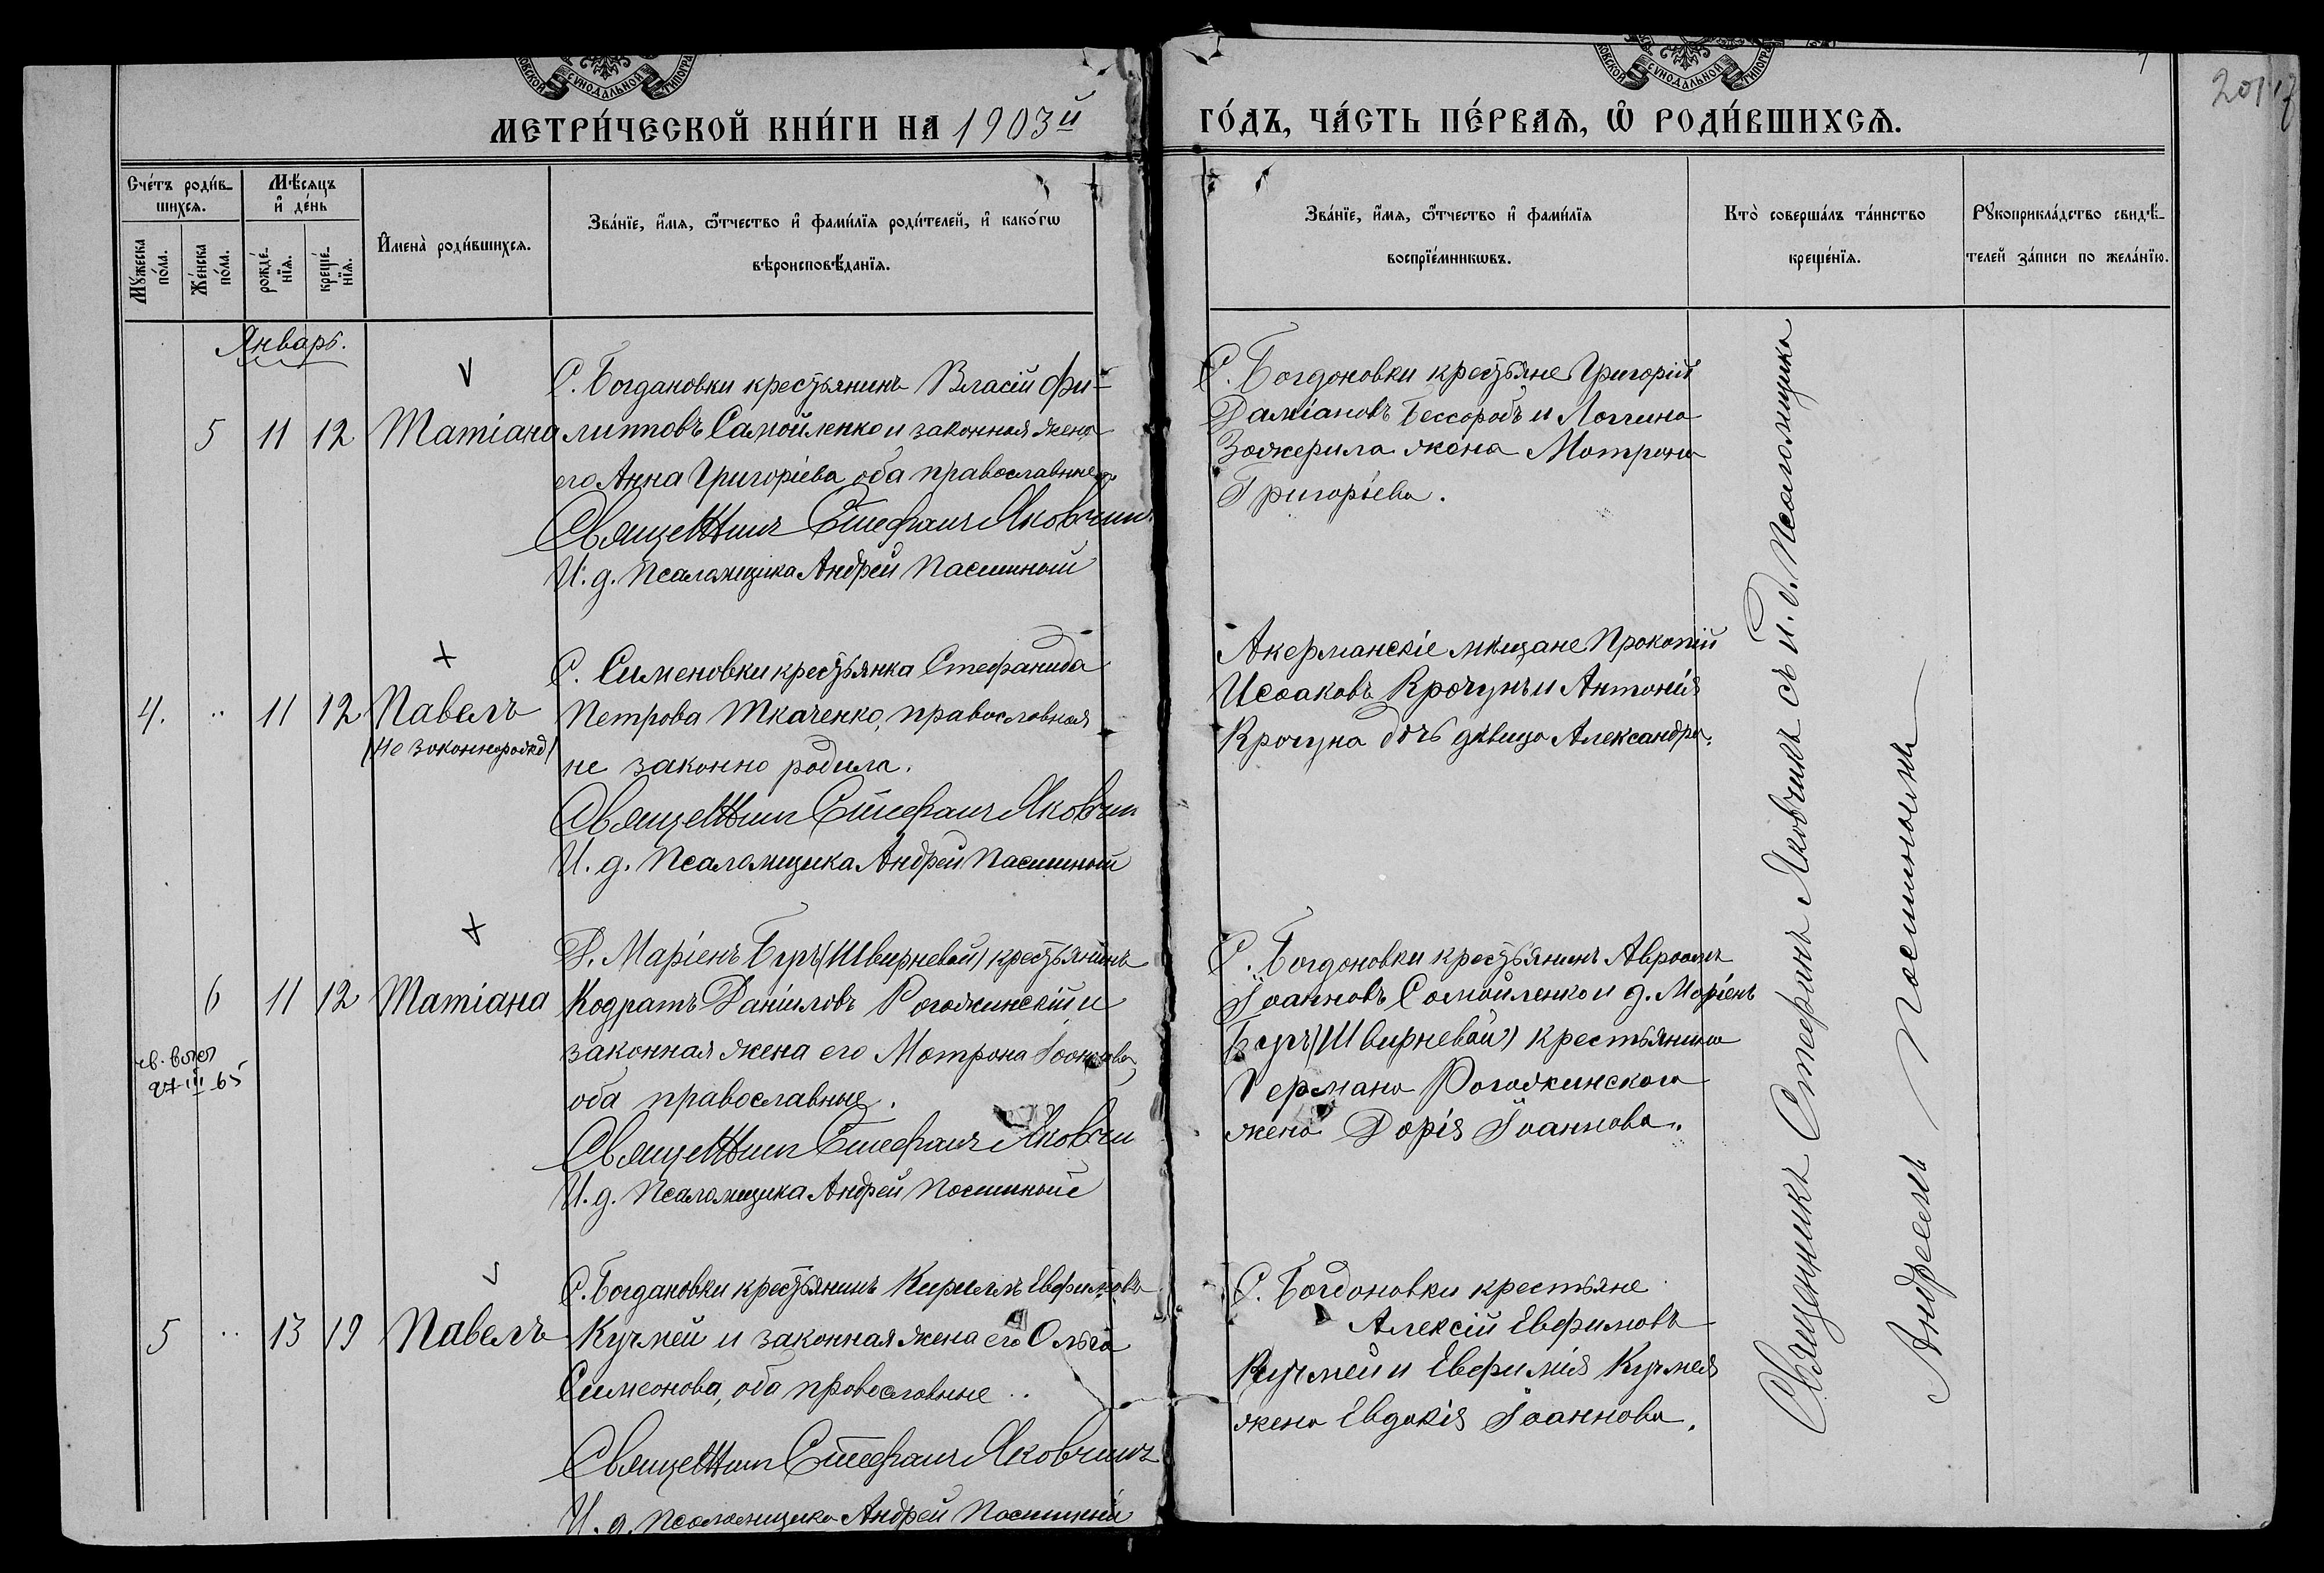 СѴНОДАЛЬНОЙ
СѴНОДАЛЬНОЙ
МЕТРИ́ЧЕСКОЙ КНИ́ГИ НА 1903й
ГО́ДЪ, ЧА́СТЬ ПЕ́РВАѦ, Ѡ҆ РОДИ́ВШИХСѦ.
Сче́тъ роди́в-
шихсѧ.
Мꙋ́жеска
по́ла.
Же́нска
по́ла.
Мѣ́сяцъ
и҆ де́нь
рожде́-
нїѧ.
креще́-
нїѧ.
И҆мена̀ роди́вшихсѧ.
Зва́нїе, и҆́мѧ, ѻ҆́тчество и҆ фами́лїѧ роди́телей, и҆ како́гѡ
вѣроисповѣ́данїѧ.
Зва́нїе, и҆́мѧ, ѻ҆́тчество и҆ фами́лїѧ
воспрїе́мникѡвъ.
Кто̀ соверша́лъ та́инство
креще́нїѧ.
Рꙋкоприкла́дство свидѣ́-
телей за́писи по жела́нїю.
Январь.
5 11 12 Татіана
С. Богдановки крестьянинъ Власій Фи-
липповъ Самойленко и законная жена
его Анна Григоріева оба православные.
Священникъ Стефанъ Яковчикъ
И. д. Псаломщика Андрей Пасишный
С. Богдановки крестьяне Григорій
Даміановъ и Логгина
жена Матрона
Григоріева.
4. 11 12 Павелъ
(Не законнорожд)
С. Сименовки крестьянка Стефанида
Петрова Ткаченко, православная
не законно родила.
Священникъ Стефанъ Яковчик
И. д. Псаломщика Андрей Пасишный
Акерманскіе мѣщане Прокопій
Исааковъ Крочунъ и Антонія
Крочуна дочь дѣвица Александра.
6 11 12 Татіана
27 III 65
Д. Маріенъ Буръ (Швирневой) крестьянинъ
Кодратъ Даніиловъ Рогожинскій и
законная жена его Матрона Іоаннова
оба православные.
Священникъ Стефанъ Яковчик
И. д. Псаломщика Андрей Пасишный
С. Богдановки крестьянинъ Авраамъ
Іоанновъ Самойленко и д. Маріенъ
Буръ (Швирневой) крестьянина
Германа Рогожинскаго
жена Дарія Іоаннова.
5 13 19 Павелъ
С. Богдановки крестьянинъ Кириллъ Евфимовъ
Кучмей и законная жена его Ольга
Симеонова, оба православные
Священникъ Стефанъ Яковчикъ
И. д. Псаломщика Андрей Пасишный
С. Богдановки крестьяне
Алексій Евфимовъ
Кучмей и Евфимія Кучмея
жена Евдокія Іоаннова.
Священникъ Стефанъ Яковчикъ съ и. д. Псаломщика
Андреемъ Пасишнымъ